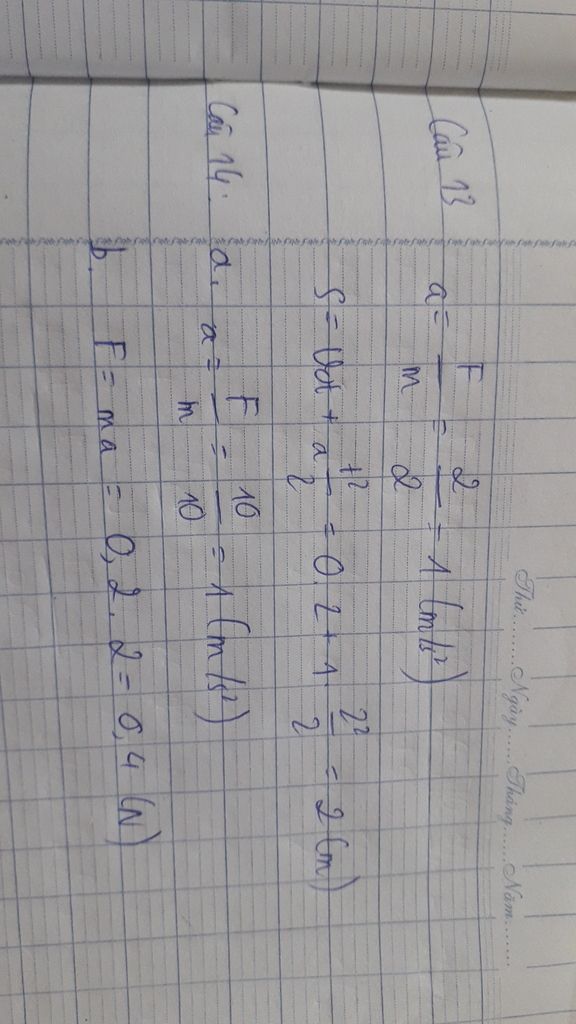 Thứ........Ngày......Tháng......Năm.......
Câu 13 a = F/m = 2/2 = 1 (m/s²)
S = Vot + a t²/2 = 0.2 + 1. 2²/2 = 2 (m)
Câu 14. a, a = F/m = 10/10 = 1 (m/s²)
b, F = ma = 0,2.2 = 0,4 (N)